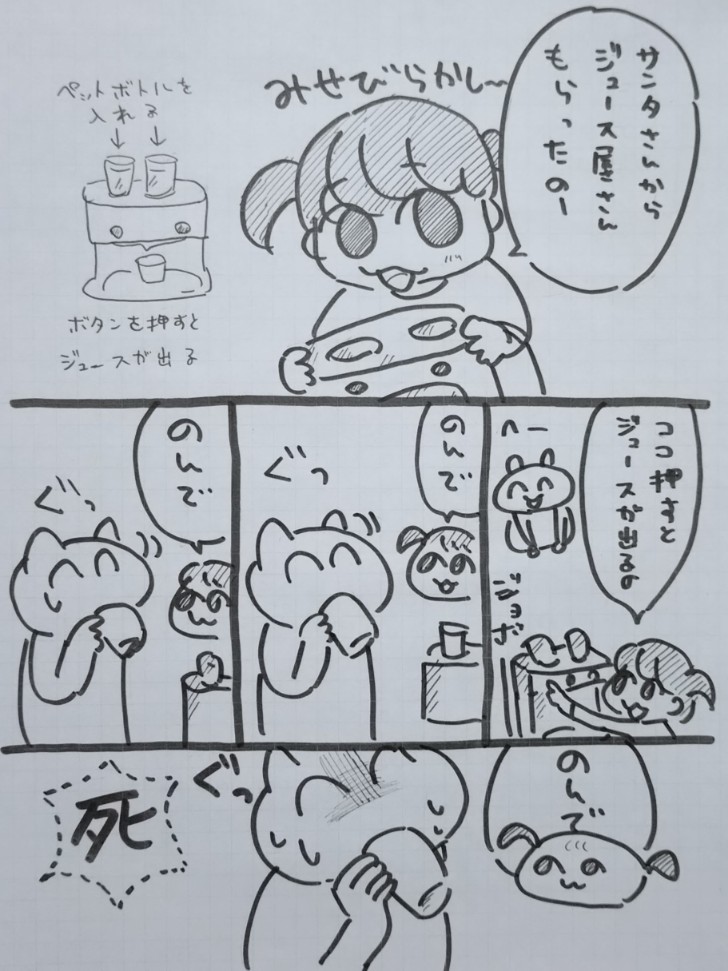 サンタさんから
ジュース屋さん
もらったのー
みせびらかし〜
ペットボトルを
入れる
ボタンを押すと
ジュースが出る
ココ押すと
ジュースが出るの
へー
ジョボ
のんで
ぐっ
のんで
ぐっ
のんで
ぐっ
死